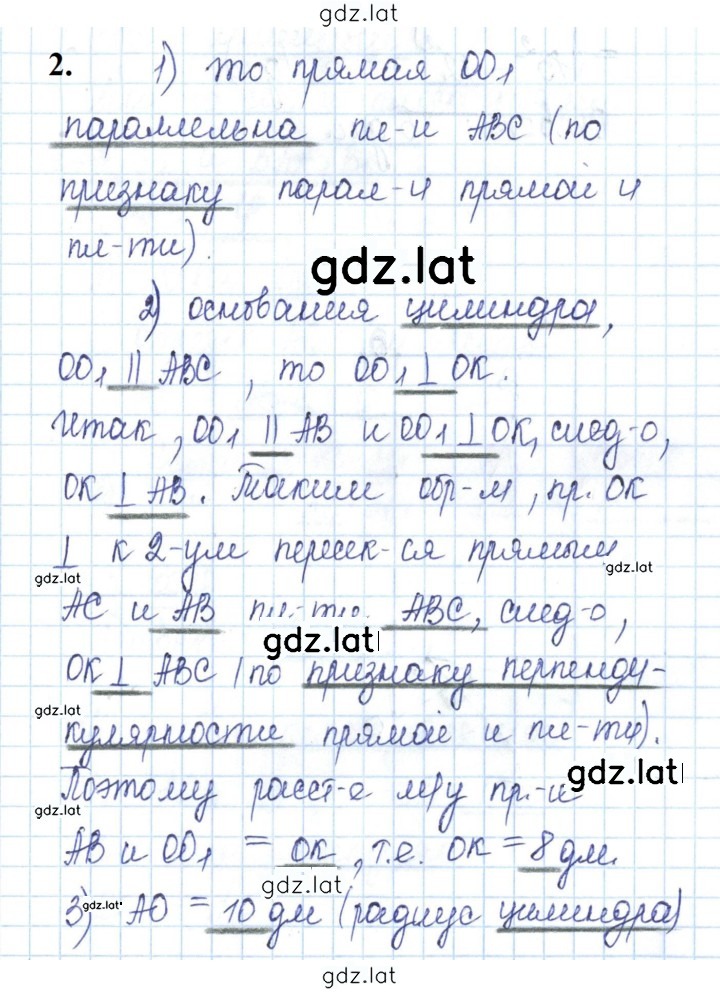 gdz.lat
2. 1) то прямая OO₁
параллельна пл-и ABC (по
признаку парал-и прямой и
пл-ти).
gdz.lat
2) основания цилиндра,
OO₁ || ABC, то OO₁ ⊥ OK.
Итак, OO₁ || AB и OO₁ ⊥ OK, след-о,
OK ⊥ AB. Таким обр-м, пр. OK
⊥ к 2-ум пересек-ся прямым
gdz.lat gdz.lat
AC и AB пл-ти ABC, след-о,
gdz.lat
OK ⊥ ABC (по признаку перпенди-
gdz.lat
кулярности прямой и пл-ти).
Поэтому расст-е м/у пр.-и
gdz.lat
gdz.lat
AB и OO₁ = OK, т.е. OK = 8 дм.
gdz.lat
3) AO = 10 дм (радиус цилиндра)
gdz.lat
gdz.lat